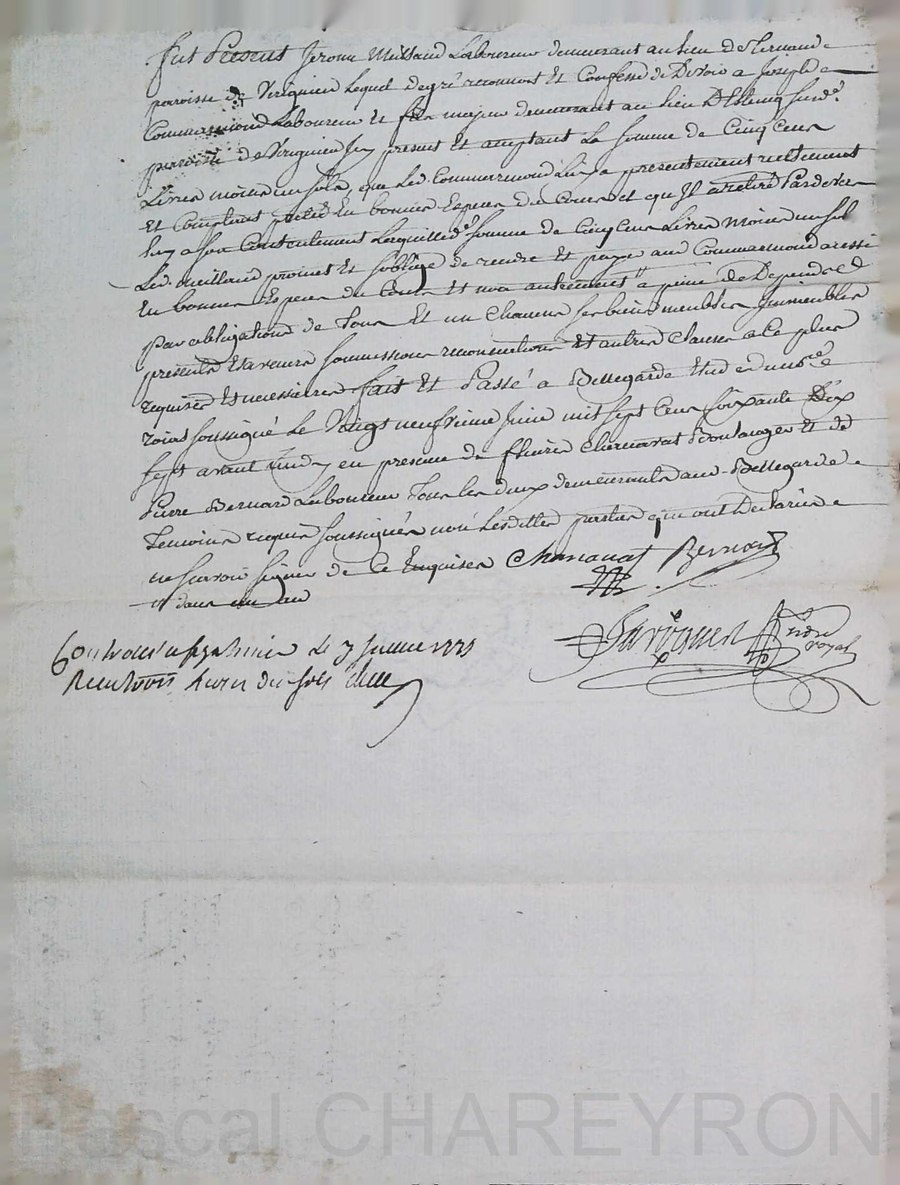 fut Present Jerome Meilland Laboureur demeurant au lieu de
paroisse de Virignieu Lequel de gré reconnoit Et Confesse de Devoir a Joseph
Commarmond Laboureur Et fils majeur demeurant au lieu
paroisse de Virignieu Icy present Et acceptant La somme de Cinq Cens
Livres moins un sols, que Led Commarmond Luy a presentement reellement
Et Comptant presté En bonnes Especes du Cours et qu'Il a retiré Pardevers
luy a son Contentement Laquelle de somme de Cinq Cens Livres moins un sol
Led Meilland promet Et soblige de rendre Et payer aud Commarmond
En bonnes Especes du Cours Et non autrement a peine de Depends &
par obligations de Tous Et un Chacuns ses biens meubles Immeubles
presents Et avenirs soumissions renonciations Et autres Clauses a Ce plus
requises Et necessaires fait Et Passé a Bellegarde Etude du no.re
roial soussigné Le Vingt neufvieme Juin mil sept Cens soixante Dix
sept avant midy en presence de Chenavat Boulanger Et de
Pierre Bernard Laboureur Tous les deux demeurants aud Bellegarde
Temoins requis soussignés non Lesdittes parties qui ont Declaré
ne sçavoir signer de Ce Enquises Chanavat Bernard
dans un an
royal
Controllé a le 7 Juillet 177
Reçu trois livres dix sols
Pascal CHAREYRON